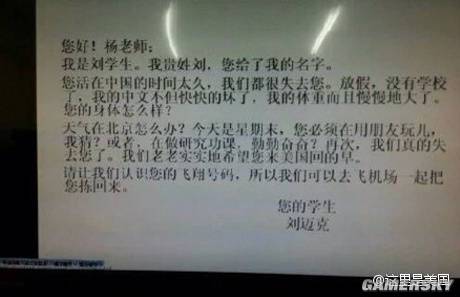 您好！杨老师：
我是刘学生。我贵姓刘，您给了我的名字。
您活在中国的时间太久，我们都很失去您。放假，没有学校
了，我的中文不但快快的坏了，我的体重而且慢慢地大了。
您的身体怎么样？
天气在北京怎么办？今天是星期末，您必须在用朋友玩儿，
我猜？或者，在做研究功课，勤勤奋奋？再次，我们真的失
去您了。我们老老实实地希望您来美国回的早。
请让我们认识您的飞翔号码，所以我们可以去飞机场一起把
您拣回来。
您的学生
刘迈克
@这里是美国
GAMERSKY